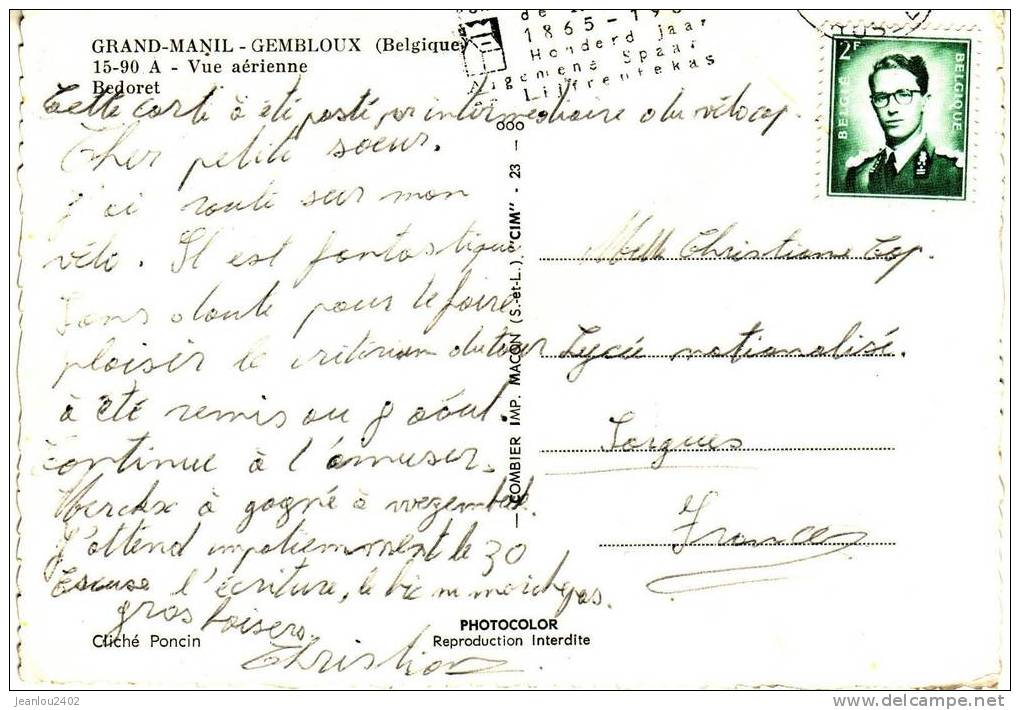 GRAND-MANIL - GEMBLOUX (Belgique)
15-90 A - Vue aérienne
Bedoret
1865-19
Honderd jaar
Algemene Spaar
Lijfrentekas
2F
BELGIË
BELGIQUE
Cette carte à été posté par intermédiaire du vélocap.
Cher petite soeur.
j'ai roulé sur mon
vélo. Il est fantastique
Sans doute pour te faire
plaisir le critérium du tour
à été remis au 8 aôut.
Continue à t'amuser.
Merckx à gagné à wezembeek.
J'attend impatiemment le 30
Excuse l'écriture, le bic ne marche pas.
gros baisers.
Christian
Melle Christiane Cap.
Lycée nationalisé.
Sorgues
France
COMBIER IMP. MACON (S.-et-L.) "CIM" - 23 -
Cliché Poncin
PHOTOCOLOR
Reproduction Interdite
jeanlou2402
delcampe.net